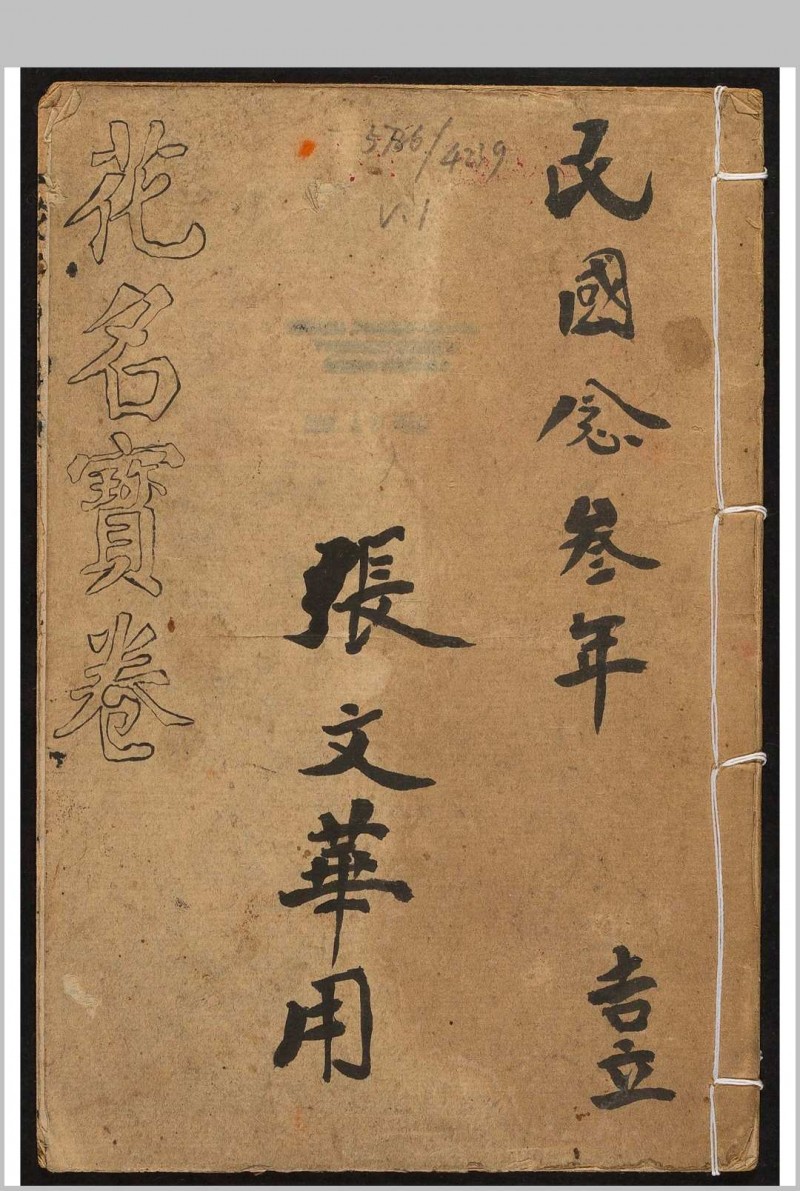 民國念叄年
吉立
張文華用
花名寶卷
5786/4239
V.1